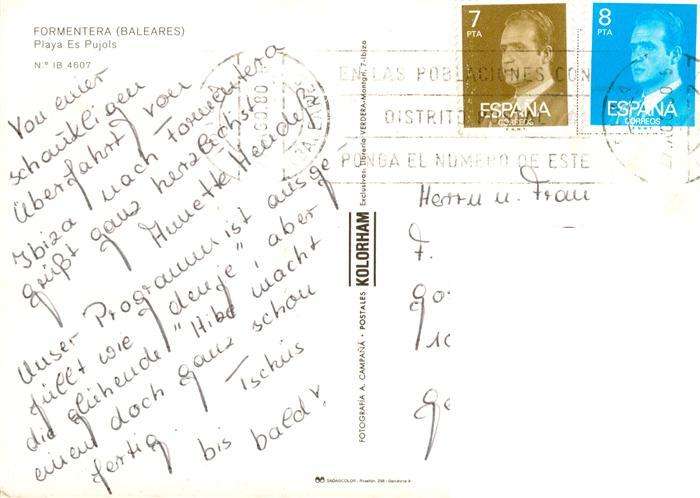 FORMENTERA (BALEARES)
Playa Es Pujols
N.º IB 4607
Von einer
schaukligen
Überfahrt von
Ibiza nach Formentera
grüßt ganz herzlichst
Annette
Unser Programm ist ausge
füllt wie denje", aber
die glühende "Hitze macht
einen doch ganz schön
fertig. Tschüs
bis bald!
FOTOGRAFIA A. CAMPAÑÁ • POSTALES KOLORHAM Exclusivas: Librería VERDERA-Monge, 7-Ibiza
7
PTA
ESPAÑA
CORREOS
8
PTA
ESPAÑA
CORREOS
EN LAS POBLACIONES CON
DISTRITO
PONGA EL NUMERO DE ESTE
Herrn u. Frau
F.